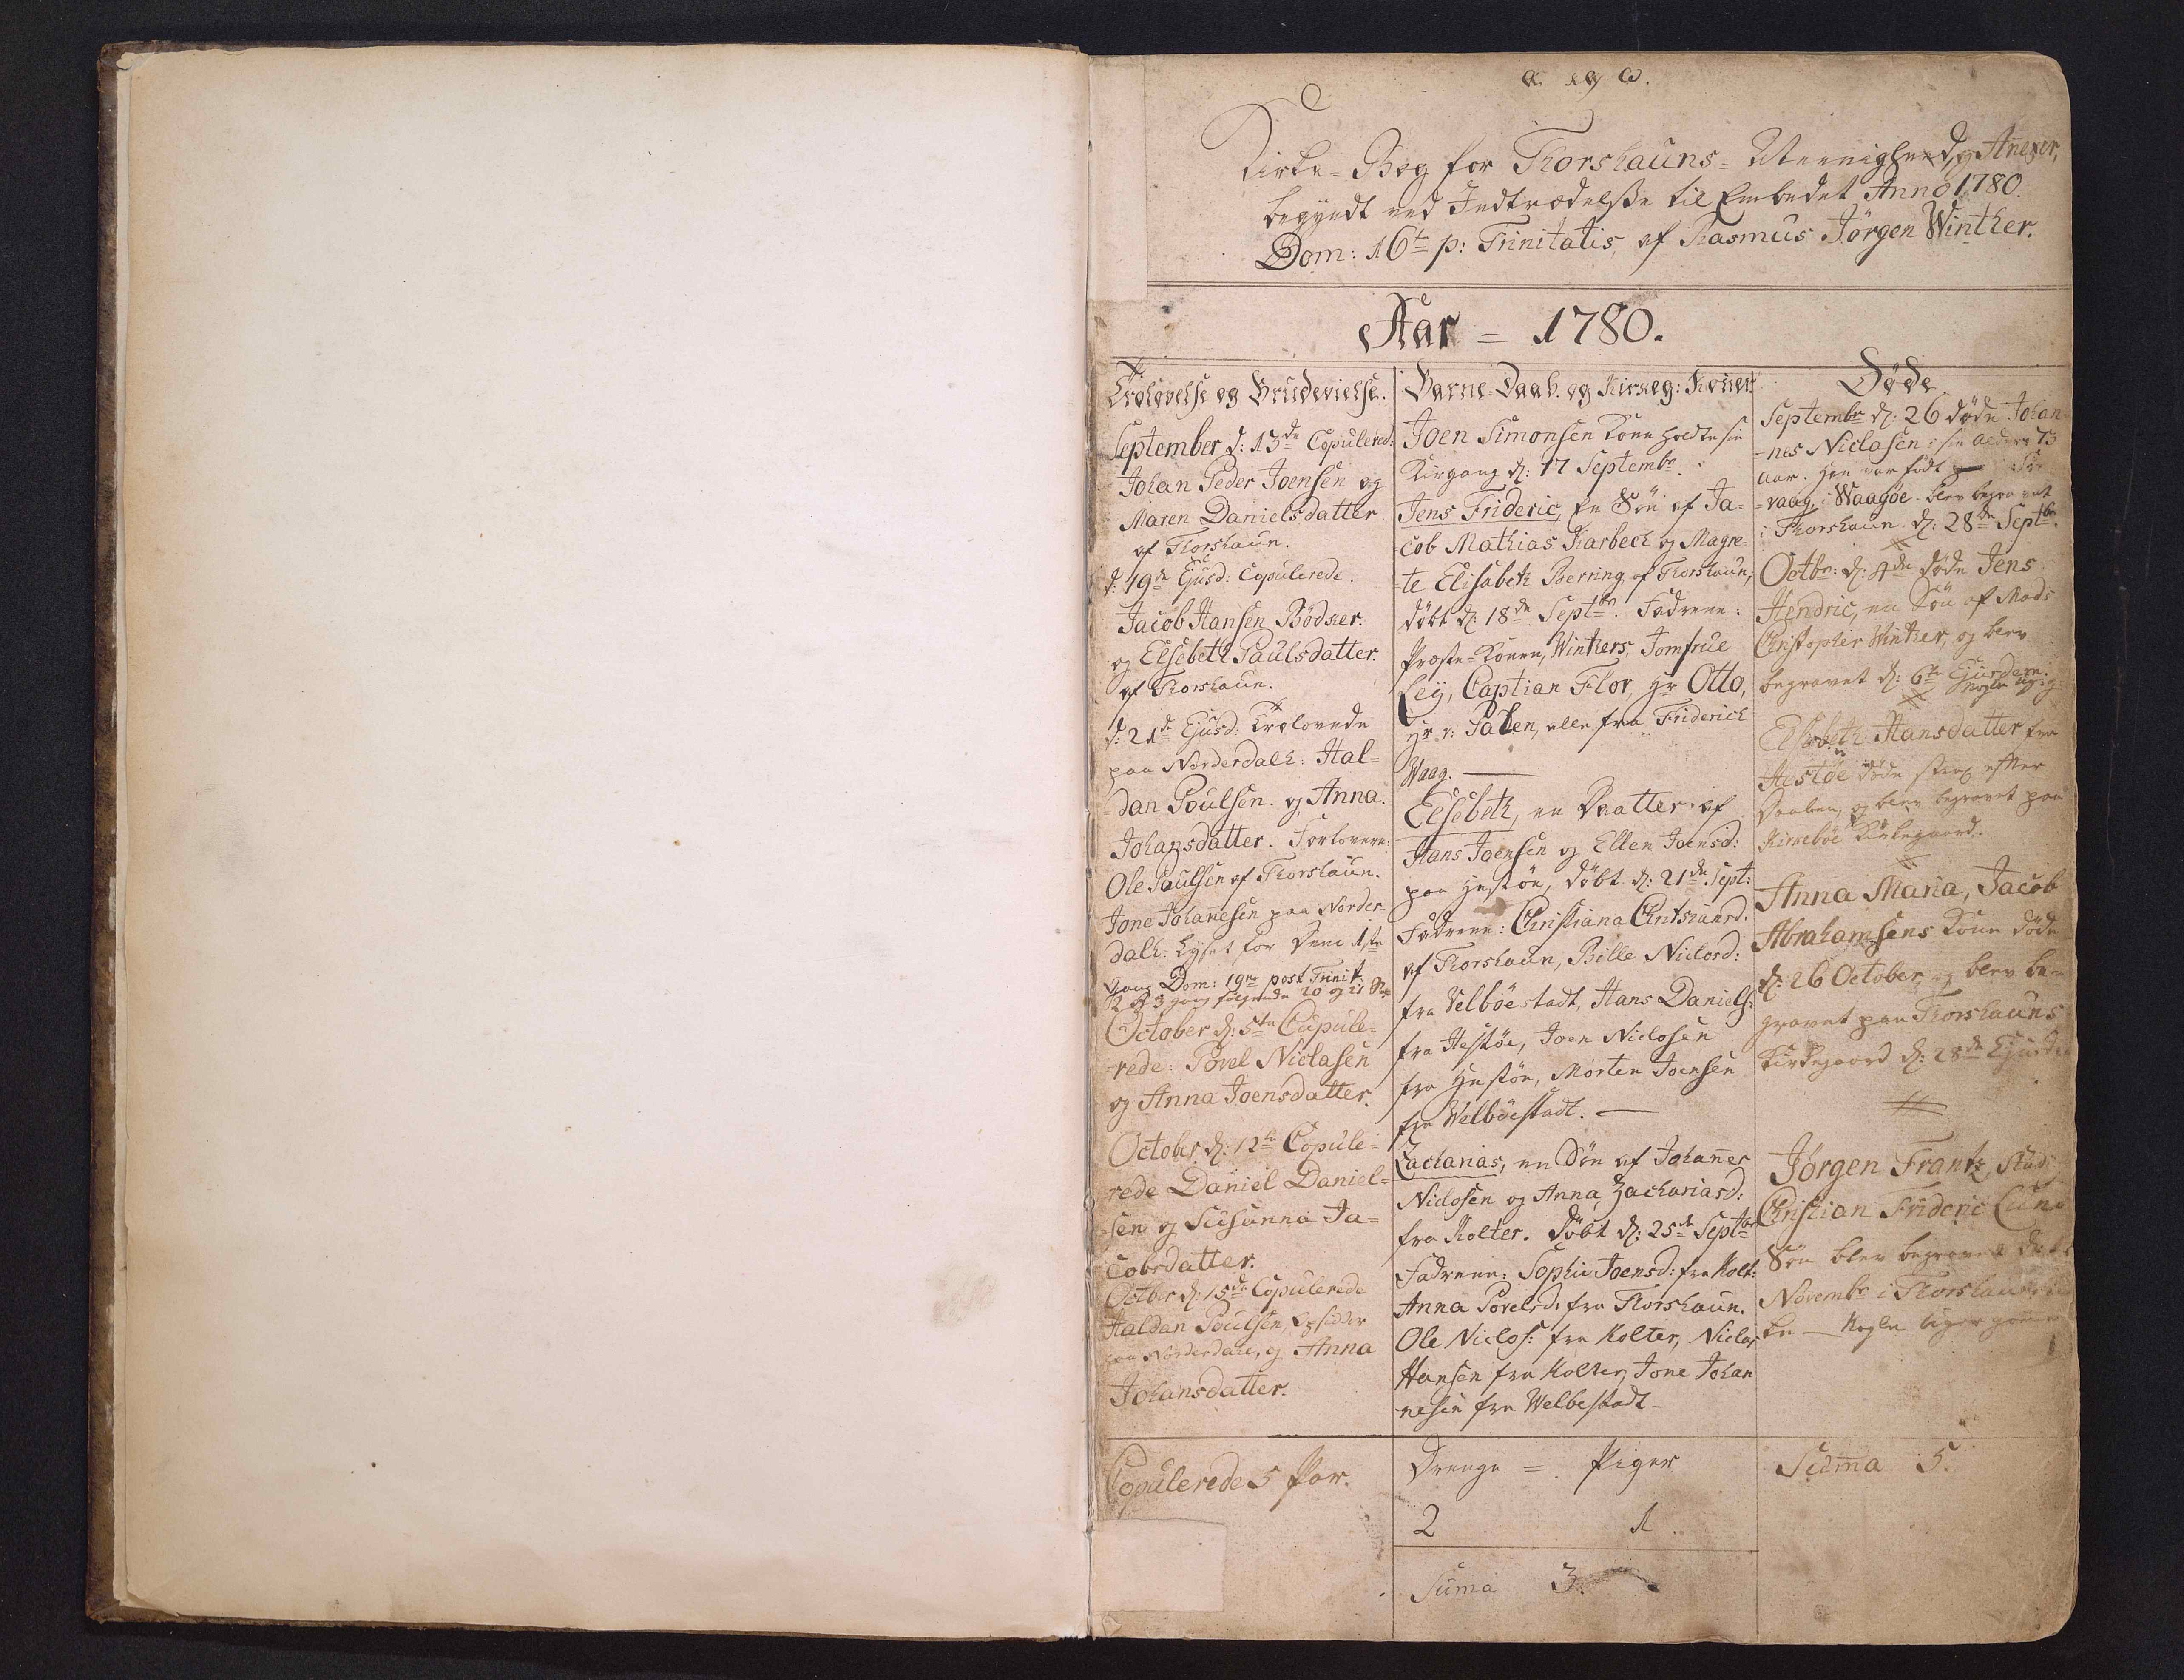 α og ω.
Kirke-Bog for Thorshauns-Meenighed, og Anexer,
begyndt ved Indtrædelsse til Embedet Anno 1780.
Dom: 16te p: Trinitatis, af Rasmus Jørgen Winther.
Aar = 1780.
Trolovelse og Brudevielse.
September d: 13de Copulered:
Johan Peder Joensen og
Maren Danielsdatter
af Thorshaun.
d: 19de Ejusd: Copulerede.
Jacob Hansen Bødker.
og Elsebeth Paulsdatter.
af Thorshaun.
d: 21de Ejusd: Trolovede
paa Norderdalh: Hal=
dan Poulsen. og Anna.
Johansdatter. Forlovere:
Ole Paulsen af Thorshaun.
Jone Johannesen paa Norder-
dalh. Lyset for dem 1ste
Gang Dom: 19de post Trinit:
2 og 3 gang følgende 20 og 21
October d: 5te Cupule=
=rede: Povel Nielasen
og Anna Joensdatter.
October d: 12te Copule=
rede Daniel Daniel=
sen og Susanna Ja=
cobsdatter.
Octber d: 15de Copulerede
Haldan Poulsen, Opsidder
paa Norderdale, og Anna
Johansdatter.
Copulerede 5 Par.
Barne-Daab. og Kirkeg: Koner.
Joen Simonsen Kone holdte sin
Kirgang d: 17 Septembr.
Jens Frideric, en Søn af Ja-
cob Mathias Karbech og Magre
-te Elisabeth Berring af Thorshaun,
døbt d: 18de Septbr. Fadrene:
Præste-Konen, Winthers, Jomfrue
Ley, Captian Flor, Hr Otto,
Hr v: Salen, alle fra Friderich
Waag. —
Elsebeth, en Daatter af
Hans Joensen og Ellen Joensd:
paa Hestøe, døbt d: 21de Sept:
Fadrene: Christiana
af Thorshaun, Bille Niclasd:
fra Velbøestadt, Hans Daniels:
fra Hestøe, Joen Niclosen
fra Hestøe, Morten Joensen
fra Welbøestadt. —
Zacharias, en Søn af Johannes
Niclosen og Anna Zachariasd:
fra Kolter. døbt d: 25de Septbr
Fadrene: Sophie Joensd: fra Kolt:
Anna Povelsd: fra Thorshaun.
Ole Niclos: fra Kolter, Niclas
Hansen fra Kolter, Jone Johan
nesen fra Welbestadt-
Drenge = Piger
2 1.
Suma 3.
Døde
Septembr d: 26 døde Johan-
-nes Niclasen i sin Alders 73
Aar. Han var født
-vaag, i Waagøe. blev begravet
i Thorshaun d: 28de Septbr.
Octbr: d: 4de døde Jens
Hendric, en Søn af Mads
Christopher Winther, og blev
begravet d: 6te Ejusdem.
Elsebeth Hansdatter fra
Hestøe døde strax efter
Daaben, og blev begravet paa
Kirkebøe Kirkegaard.
Anna Maria, Jacob
Abrahamsens Kone døde
d: 26 October, og blev be-
gravet paa Thorshauns
Kirkegaard d: 28de Ejusdem
Jørgen Frantz,
Christian Frideric
Søn blev begravet
Novembr i Thorshauns
Suma 5.